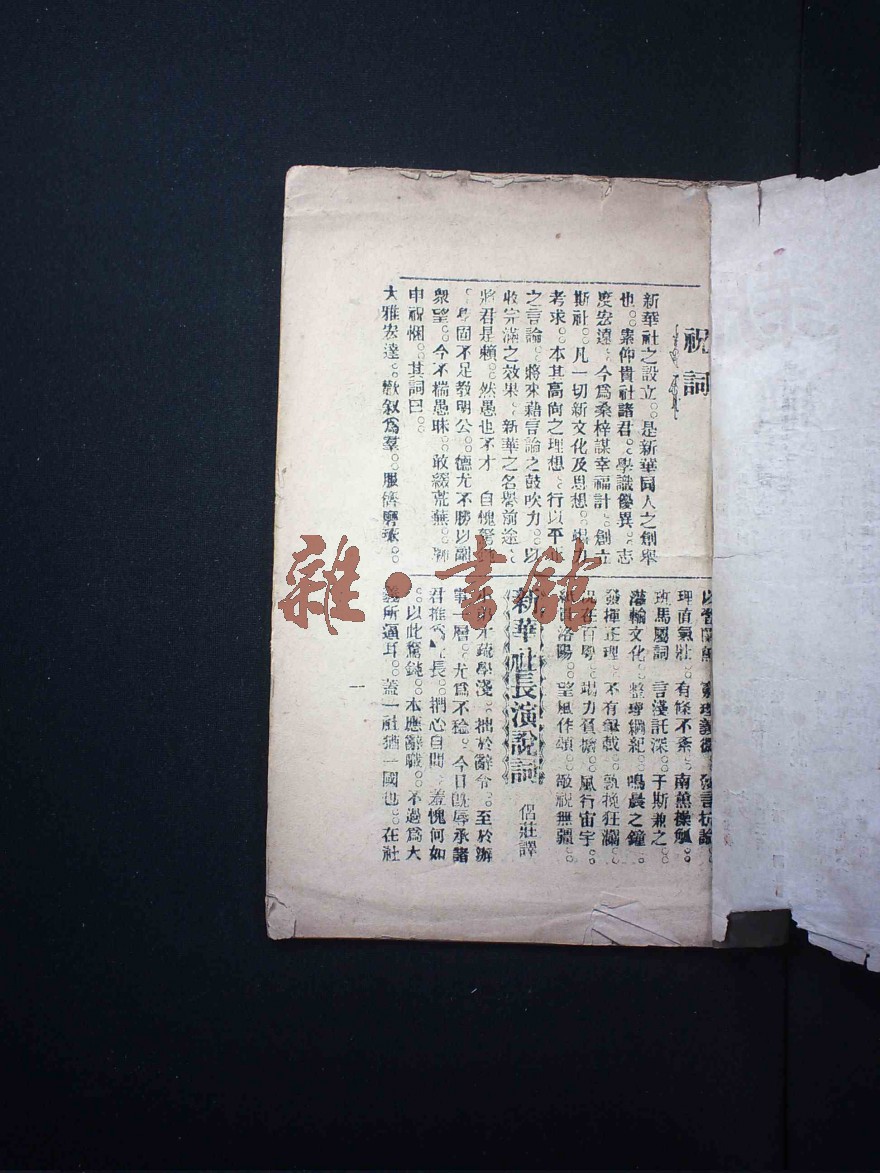 祝詞
新華社之設立。是新華同人之創舉
也。素仰貴社諸君。學識優異。志
度宏達。今爲桑梓謀幸福計。創立
斯社。凡一切新文化及思想。竭力
考求。本其高尚之理想。行以平
之言論。將來藉言論之鼓吹力。以
收完滿之效果。新華之名譽前途。
將君是賴。然愚也不才。自愧駑
。學固不足教明公。德尤不勝以副
衆望。今不揣愚昧。敢綴荒蕪。聊
申祝悃。其詞曰。
大雅宏達。樂敘爲羣。服儕磨琢。
發言抗論。
理直氣壯。有條不紊。南薰操觚。
班馬屬詞。言淺託深。于斯兼之。
灌輸文化。整理綱紀。鳴晨之鐘。
發揮正理。不有 載。孰挽狂瀾。
在百粵。竭力負擔。風行宙宇。
洛陽。望風作頌。敬祝無疆。
新華社長演說詞
侶莊譯
才疏學淺。拙於辭令。至於辦
事一層。尤爲不稔。今日既辱承諸
君推爲 長。捫心自問。羞愧何如
。以此駑鈍。本應辭職。不過爲大
義所逼耳。蓋一社猶一國也。在社
一
雜·書館